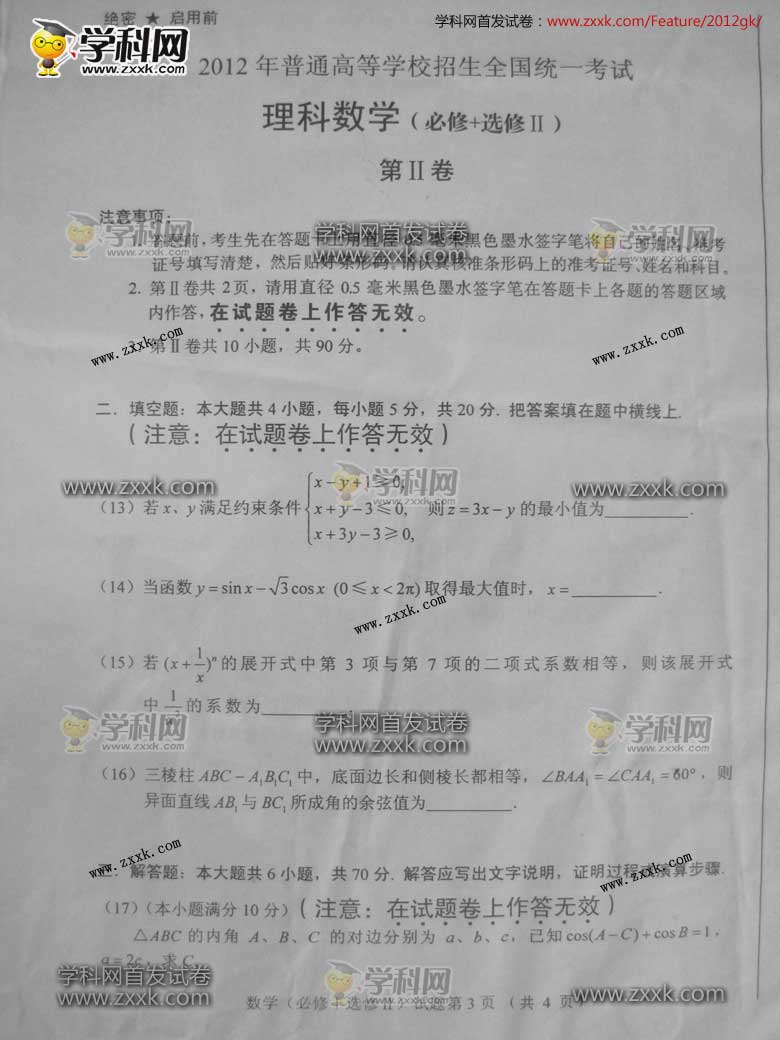 绝密 ★ 启用前
学科网首发试卷：www.zxxk.com/Feature/2012gk/
学科网
www.zxxk.com
2012 年普通高等学校招生全国统一考试
理科数学（必修+选修Ⅱ）
第Ⅱ卷
注意事项：
学科网
zxxk.com
学科网首发试卷
www.zxxk.com
学科网
zxxk.com
1. 答题前，考生先在答题卡上用直径 0.5 毫米黑色墨水签字笔将自己的姓名、准考
证号填写清楚，然后贴好条形码。请认真核准条形码上的准考证号、姓名和科目。
2. 第Ⅱ卷共 2页，请用直径 0.5 毫米黑色墨水签字笔在答题卡上各题的答题区域
内作答，在试题卷上作答无效。
3. 第Ⅱ卷共 10 小题，共 90 分。
www.zxxk.com
www.zxxk.com
二．填空题：本大题共 4 小题，每小题 5 分，共 20 分．把答案填在题中横线上．
（注意：在试题卷上作答无效）
www.zxxk.com
学科网
zxxk.com
www.zxxk.com
（13）若 x、y 满足约束条件 { x－y＋1≥0, x＋y－3≤0, x＋3y－3≥0, 则 z＝3x－y 的最小值为________．
（14）当函数 y＝sin x－√3cos x (0≤x＜2π) 取得最大值时，x＝________．
www.zxxk.com
（15）若 (x＋1/x)ⁿ 的展开式中第 3 项与第 7 项的二项式系数相等，则该展开式
中 1/x² 的系数为________
学科网
zxxk.com
学科网首发试卷
www.zxxk.com
学科网
zxxk.com
（16）三棱柱 ABC－A₁B₁C₁ 中，底面边长和侧棱长都相等，∠BAA₁＝∠CAA₁＝60°，则
异面直线 AB₁ 与 BC₁ 所成角的余弦值为________．
www.zxxk.com
www.zxxk.com
三．解答题：本大题共 6 小题，共 70 分．解答应写出文字说明，证明过程或演算步骤．
（17）（本小题满分 10 分）（注意：在试题卷上作答无效）
△ABC 的内角 A、B、C 的对边分别为 a、b、c，已知 cos(A－C)＋cos B＝1，
a＝2c，求 C．
学科网首发试卷
www.zxxk.com
学科网
zxxk.com
学科网首发试卷
www.zxxk.com
数学（必修＋选修Ⅱ）试题第 3 页 （共 4 页）